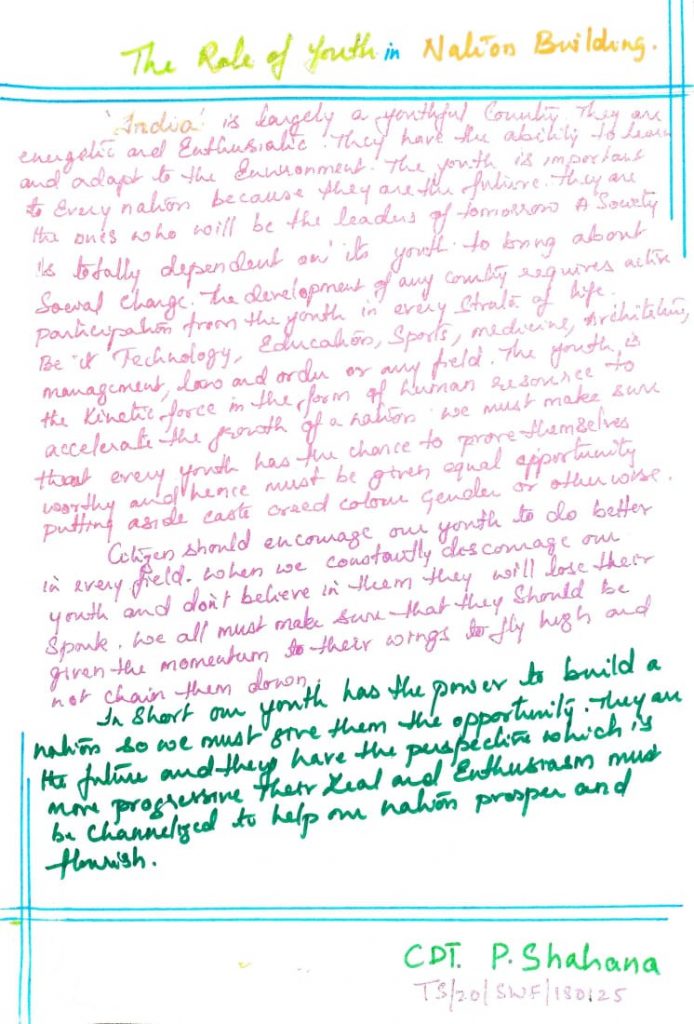 The Role of Youth in Nation Building.
'India' is largely a youthful Country. They are
energetic and Enthusiatic. They have the ability to learn
and adapt to the Environment. The youth is important
to Every nation because they are the future. They are
the ones who will be the leaders of tomorrow A Society
is totally dependent on its youth to bring about
Social Change. The development of any country requires active
participation from the youth in every Strata of life.
Be it Technology, Education, Sports, medicine, Architecture,
management, law and order or any field. The youth is
the Kinetic force in the form of human resource to
accelerate the growth of a nation. we must make sure
that every youth has the chance to prove themselves
worthy and hence must be given equal opportunity
putting aside caste creed colour Gender or otherwise.
Citizen should encourage our youth to do better
in every field. when we constantly discourage our
youth and don't believe in them they will lose their
Spark. we all must make sure that they Should be
given the momentum to their wings to fly high and
not chain them down.
In Short our youth has the power to build a
nation so we must give them the opportunity. They are
the future and they have the perspective which is
more progressive their zeal and Enthusiasm must
be channelized to help our nation prosper and
flourish.
CDT. P. Shahana
TS/20/SWF/180125